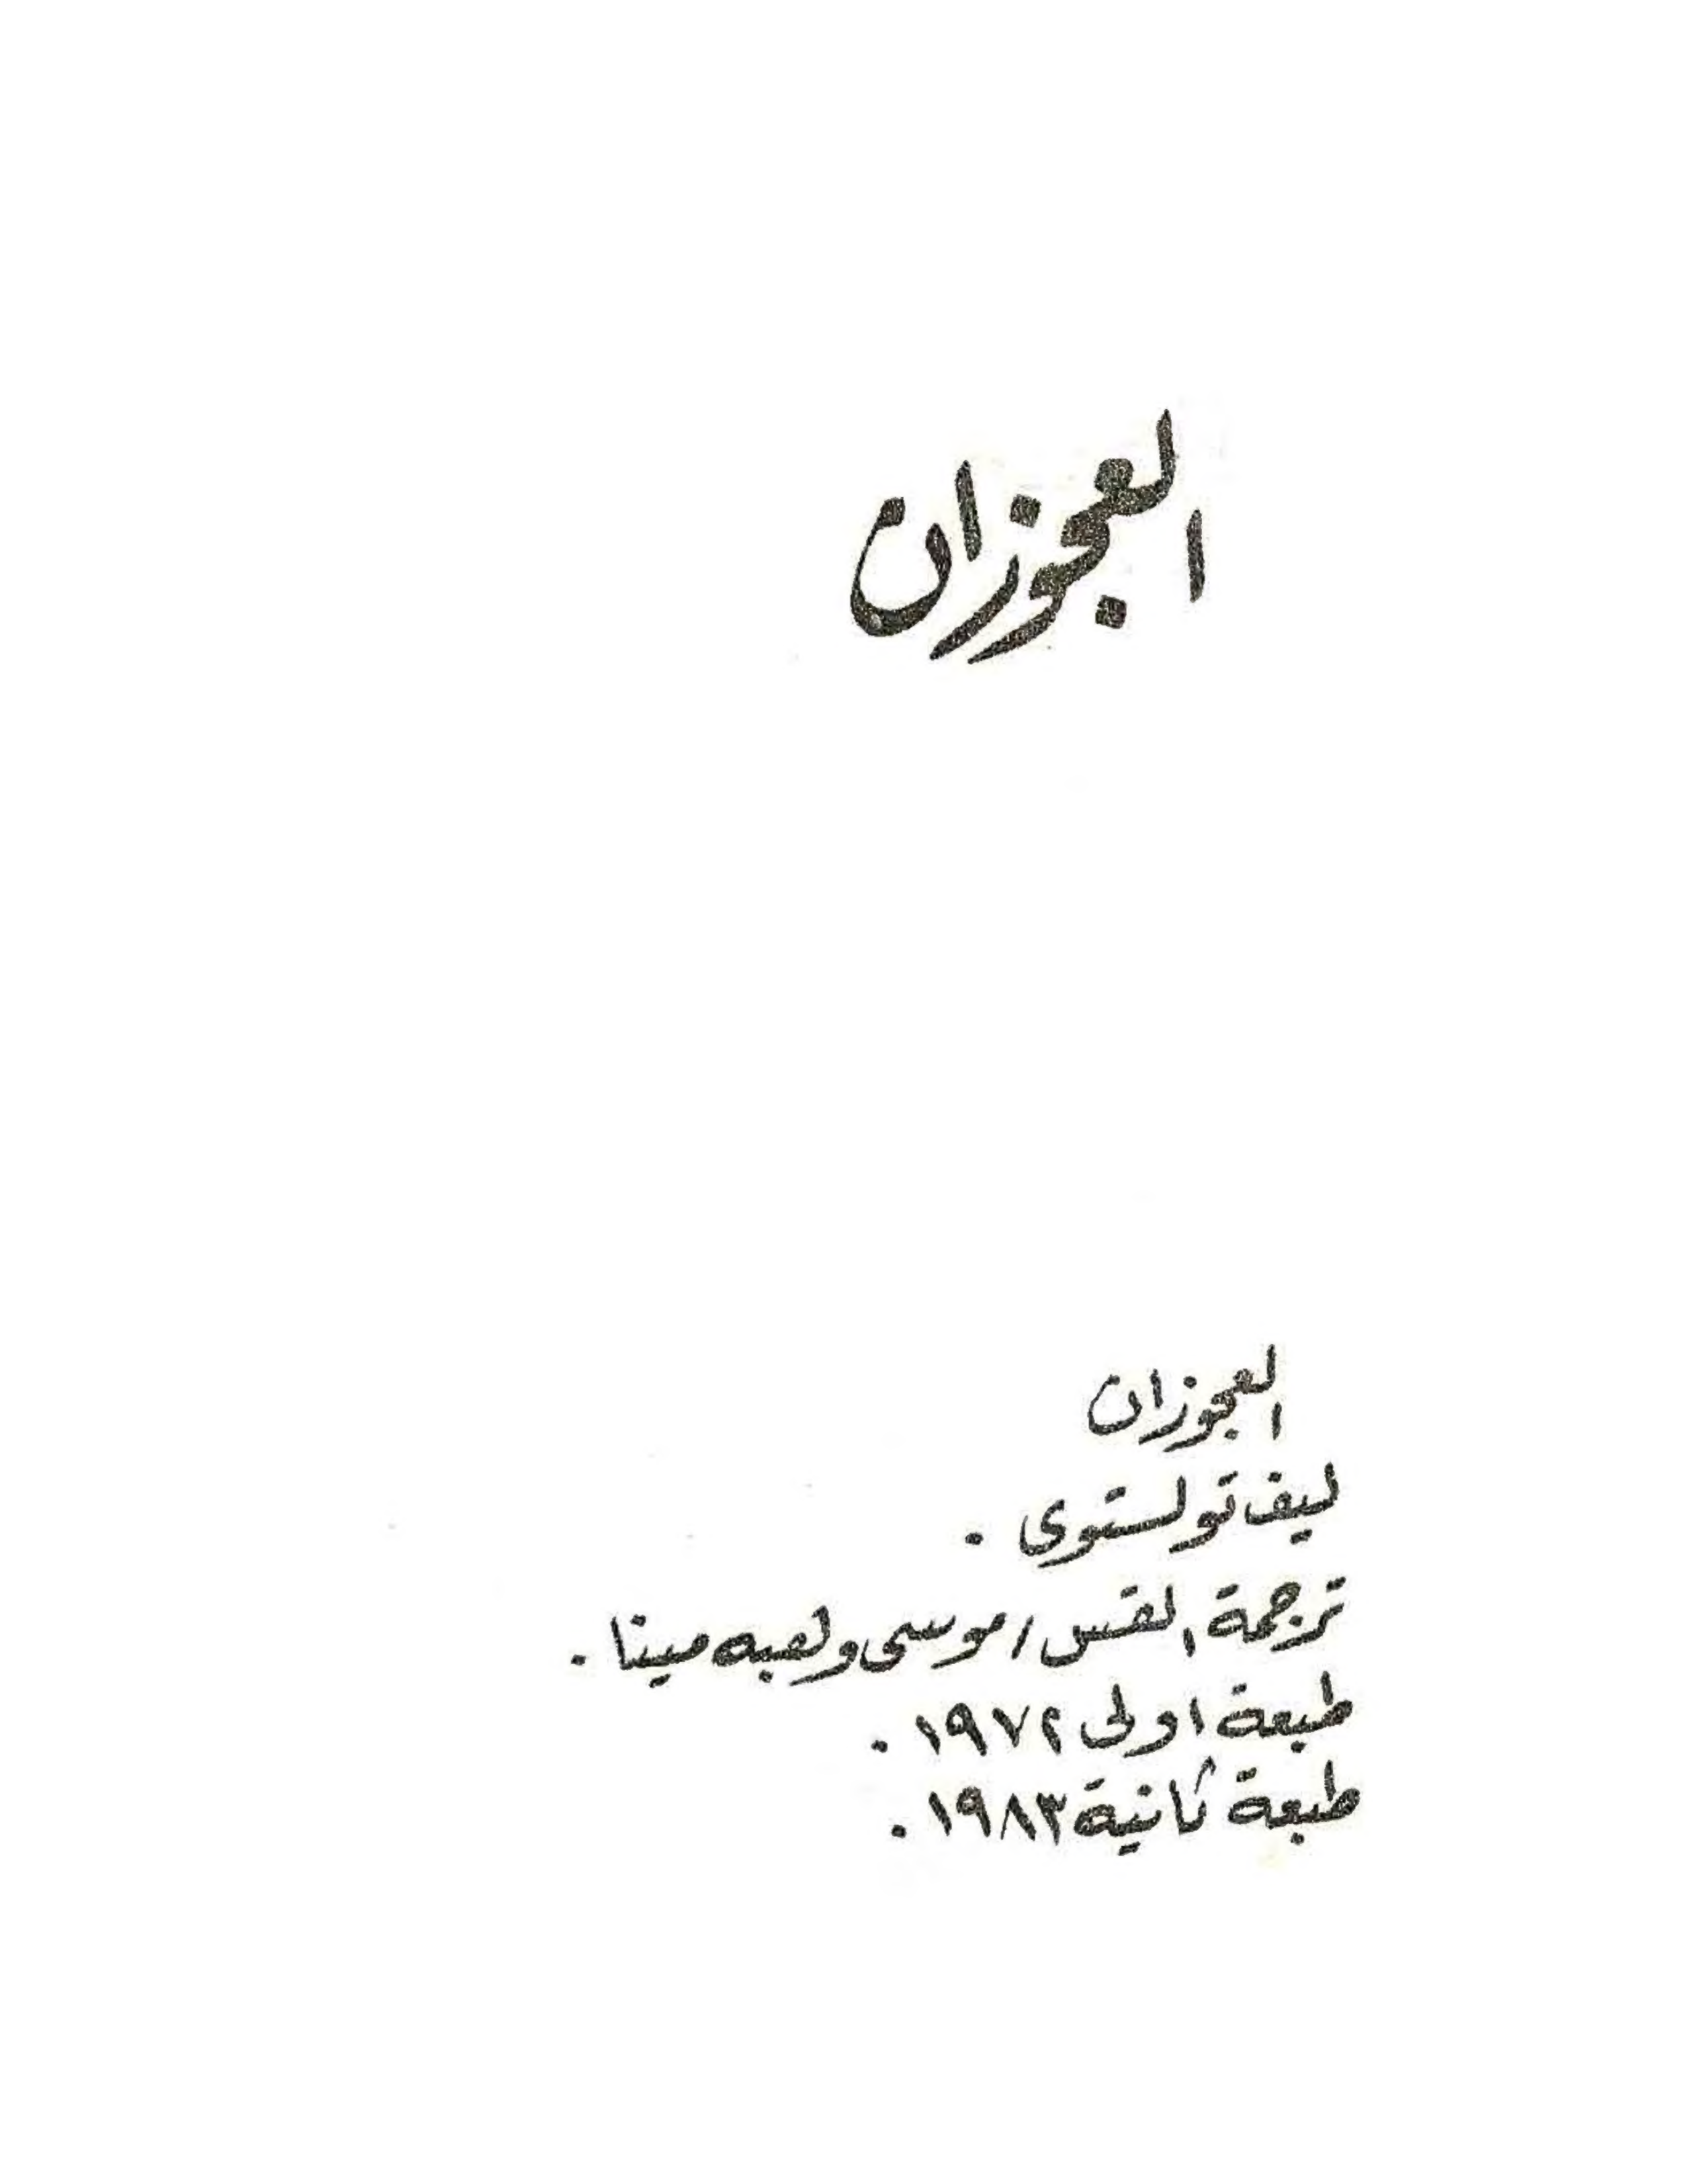 العجوزان
العجوزان
ليف تولستوى .
ترجمة القس / موسى وهبه مينا .
طبعة اولى ١٩٧٢ .
طبعة ثانية ١٩٨٣ .